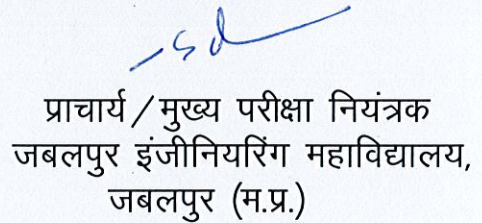 प्राचार्य / मुख्य परीक्षा नियंत्रक
जबलपुर इंजीनियरिंग महाविद्यालय,
जबलपुर (म.प्र.)